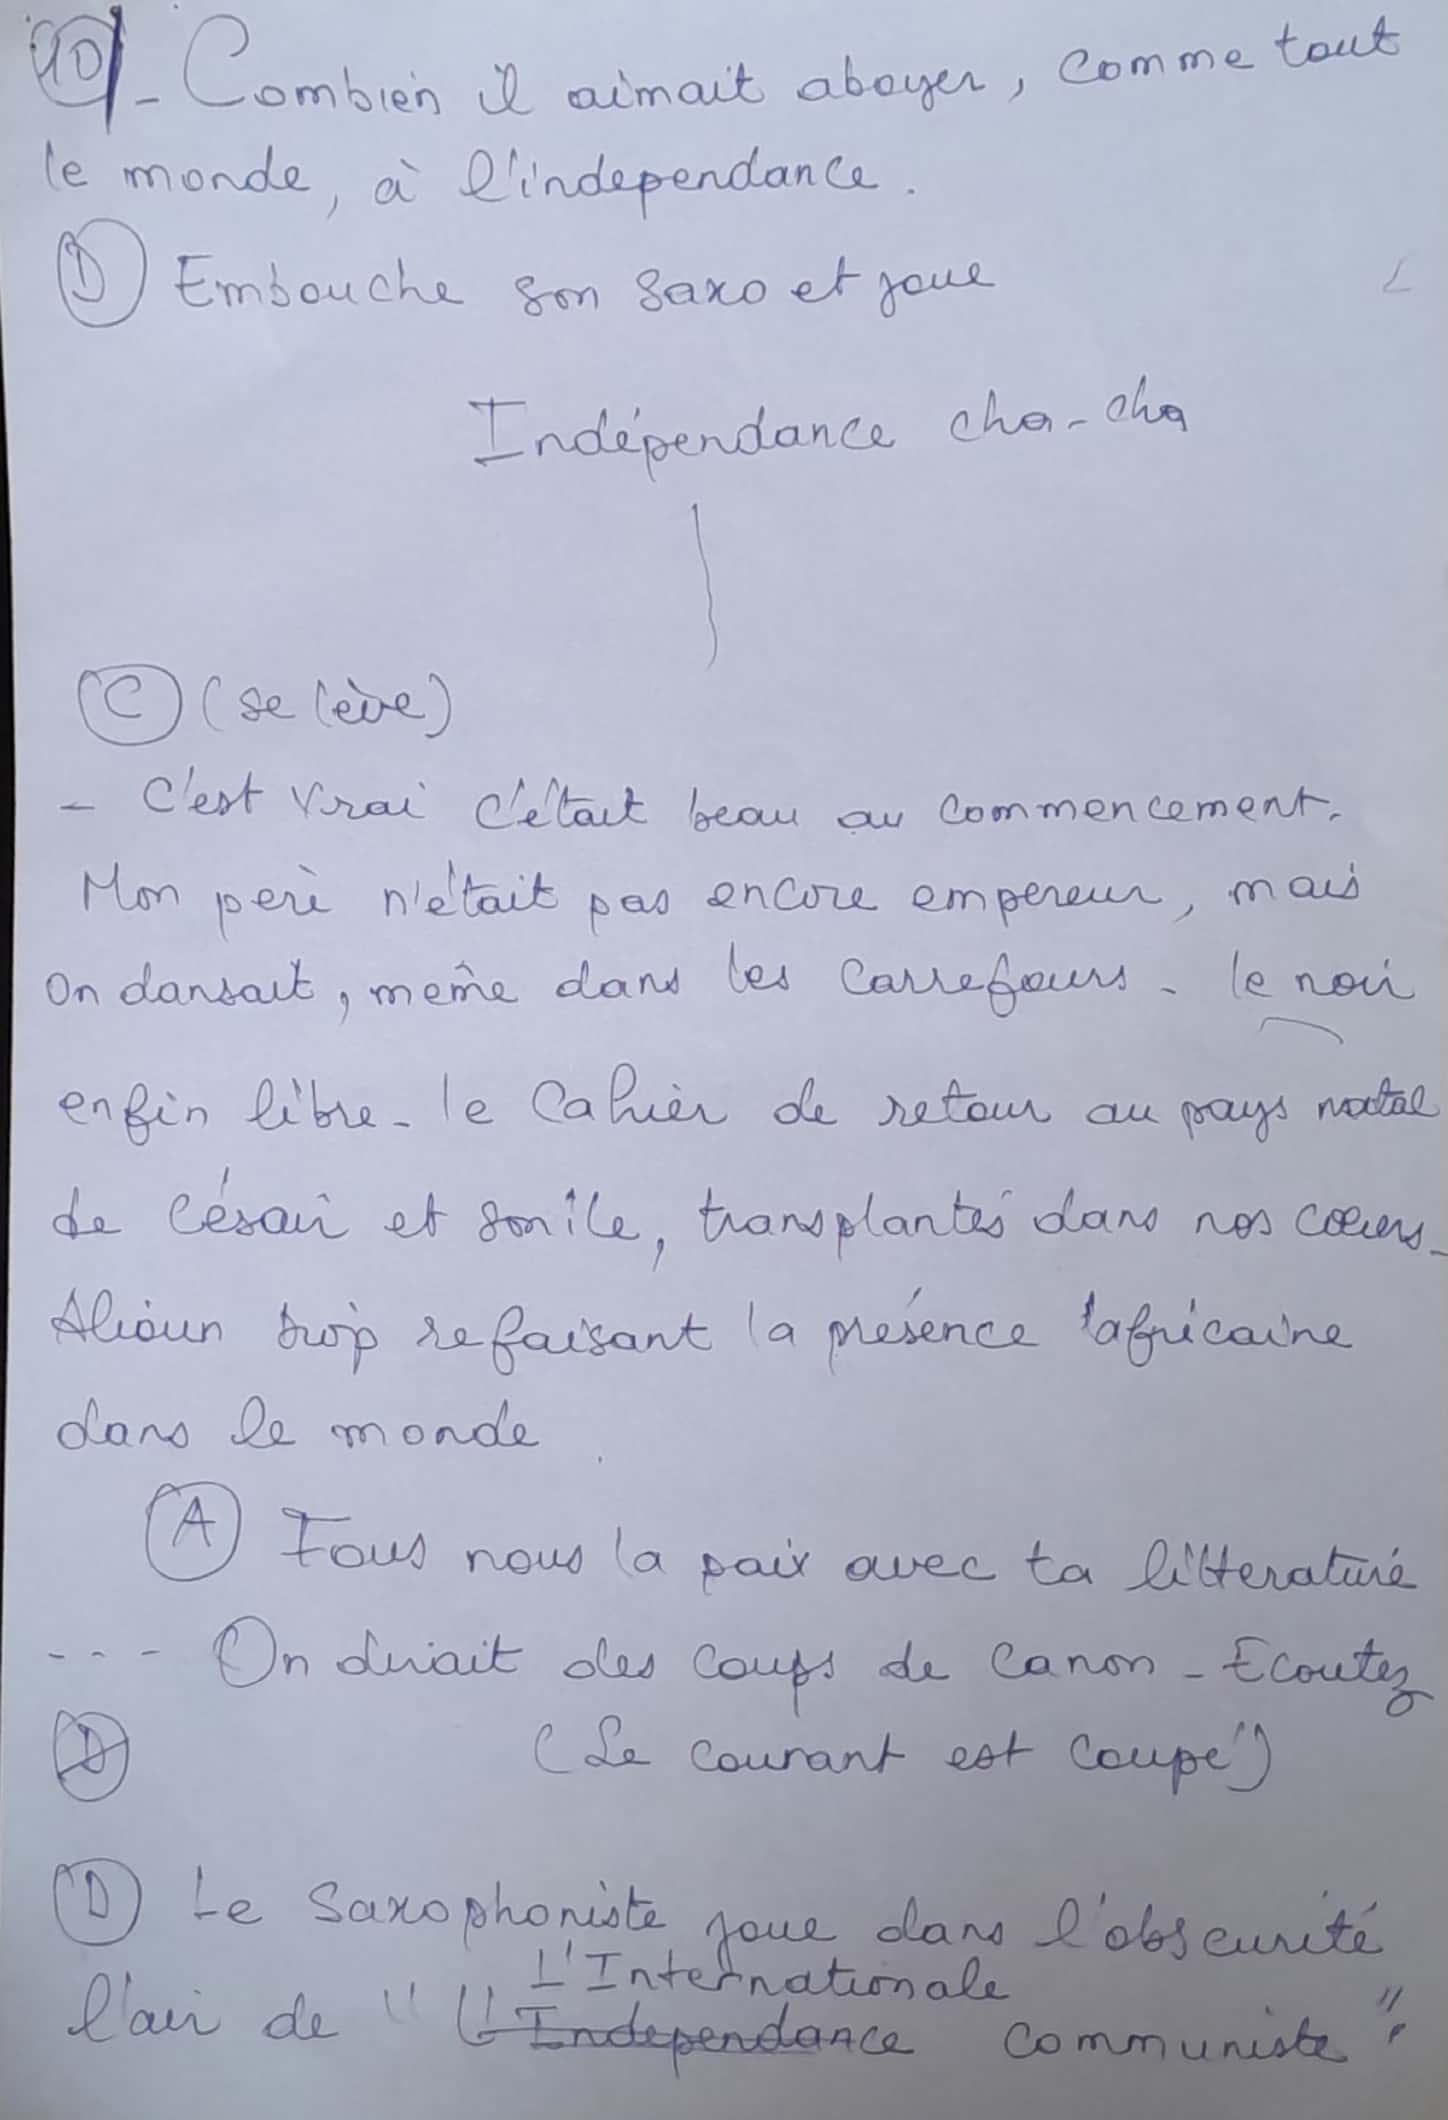 10 - Combien il aimait aboyer, comme tout
le monde, à l'independance.
D Embouche son saxo et joue
Indépendance cha-cha
C (se lève)
- C'est vrai c'était beau au commencement.
Mon père n'était pas encore empereur, mais
on dansait, même dans les carrefours. le noir
enfin libre. le Cahier de retour au pays natal
de Césair et son île, transplantés dans nos cœurs.
Alioun Diop refaisant la présence africaine
dans le monde
A Fous nous la paix avec ta litterature
--- On dirait des coups de canon - Ecoutez
D (Le courant est coupé)
D Le Saxophoniste joue dans l'obscurité
L'Internationale
l'air de " L'Independance communiste ".